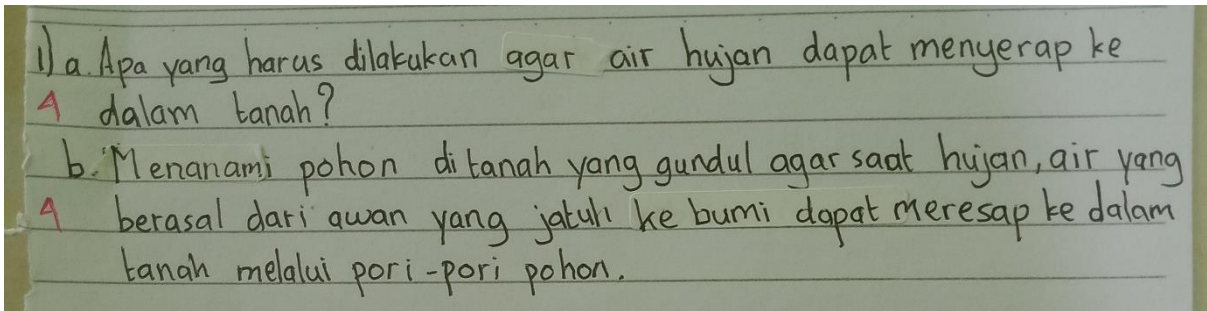 1) a. Apa yang harus dilakukan agar air hujan dapat menyerap ke
4 dalam tanah?
b. Menanami pohon di tanah yang gundul agar saat hujan, air yang
4 berasal dari awan yang jatuh ke bumi dapat meresap ke dalam
tanah melalui pori-pori pohon.